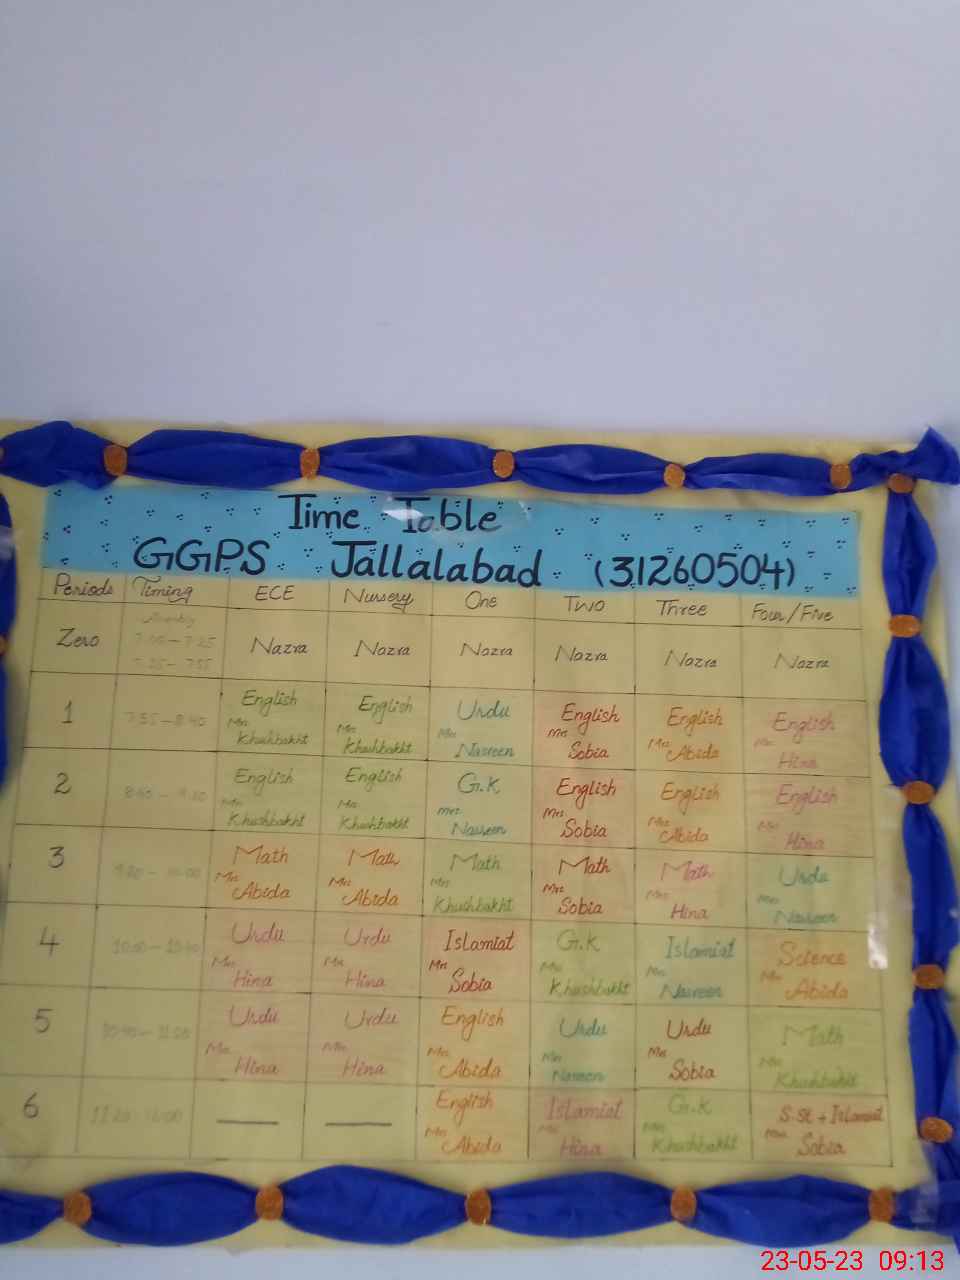 Time Table
GGPS Jallalabad (31260504)
Periods Timing ECE Nursery One Two Three Four/Five
Zero 7:00 - 7:25 Nazra Nazra Nazra Nazra Nazra Nazra
7:25 - 7:55
1 7:55 - 8:40 English English Urdu English English English
Mrs Khushbakht Mrs Khushbakht Mrs Nasreen Mrs Sobia Mrs Abida Mrs Hina
2 8:40 - 9:20 English English G.K English English English
Mrs Khushbakht Mrs Khushbakht Mrs Nasreen Mrs Sobia Mrs Abida Mrs Hina
3 9:20 - 10:00 Math Math Math Math Math Urdu
Mrs Abida Mrs Abida Mrs Khushbakht Mrs Sobia Mrs Hina Mrs Nasreen
4 10:00 - 10:40 Urdu Urdu Islamiat G.K Islamiat Science
Mrs Hina Mrs Hina Mrs Sobia Mrs Khushbakht Mrs Nasreen Mrs Abida
5 10:40 - 11:20 Urdu Urdu English Urdu Urdu Math
Mrs Hina Mrs Hina Mrs Abida Mrs Nasreen Mrs Sobia Mrs Khushbakht
6 11:20 - 12:00 English Islamiat G.K S.St + Islamiat
Mrs Abida Mrs Hina Mrs Khushbakht Mrs Sobia
23-05-23 09:13